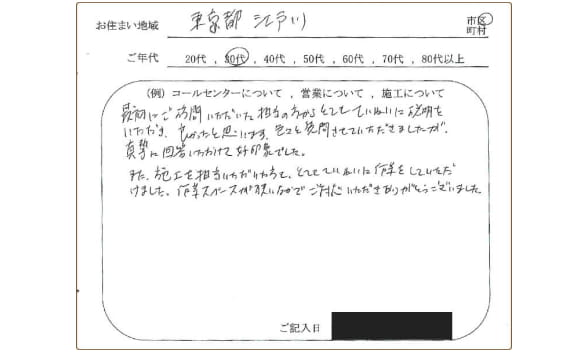 お住まい地域 東京都 江戸川 市区
町村
ご年代 20代 , 30代 , 40代 , 50代 , 60代 , 70代 , 80代以上
(例) コールセンターについて , 営業について , 施工について
最初にご訪問いただいた担当の方からとてもていねいに説明を
いただき、良かったと思います。色々と質問させていただきましたが、
真摯に回答いただけて好印象でした。
また、施工を担当いただいた方も、とてもていねいに作業をしていただ
けました。作業スペースが狭いなかでご対応いただきありがとうございました
ご記入日